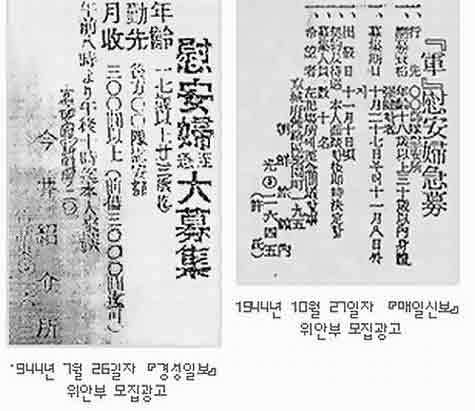 慰安婦至急大募集
年齢 一七歳以上廿三歳迄
勤先 後方〇〇隊慰安部
月收 三〇〇圓以上(前借三〇〇〇圓迄可)
午前八時より午後十時迄本人來談
今井紹介所
1944년 7월 26일자 『경성일보』
위안부 모집광고
『軍』慰安婦急募
一、行先 〇〇部隊慰安所
年齢十八歳以上三十歳以内身體
一、募集期日 十月二十七日 十一月八日
一、出發日 十一月十日頃
一、契約及待遇 本人面談後即時決定
一、募集人員 數 名
一、希望者 左記場所에至急問議
一九五
朝鮮旅館内
光③二六四五
(許氏)
1944년 10월 27일자 『매일신보』
위안부 모집광고